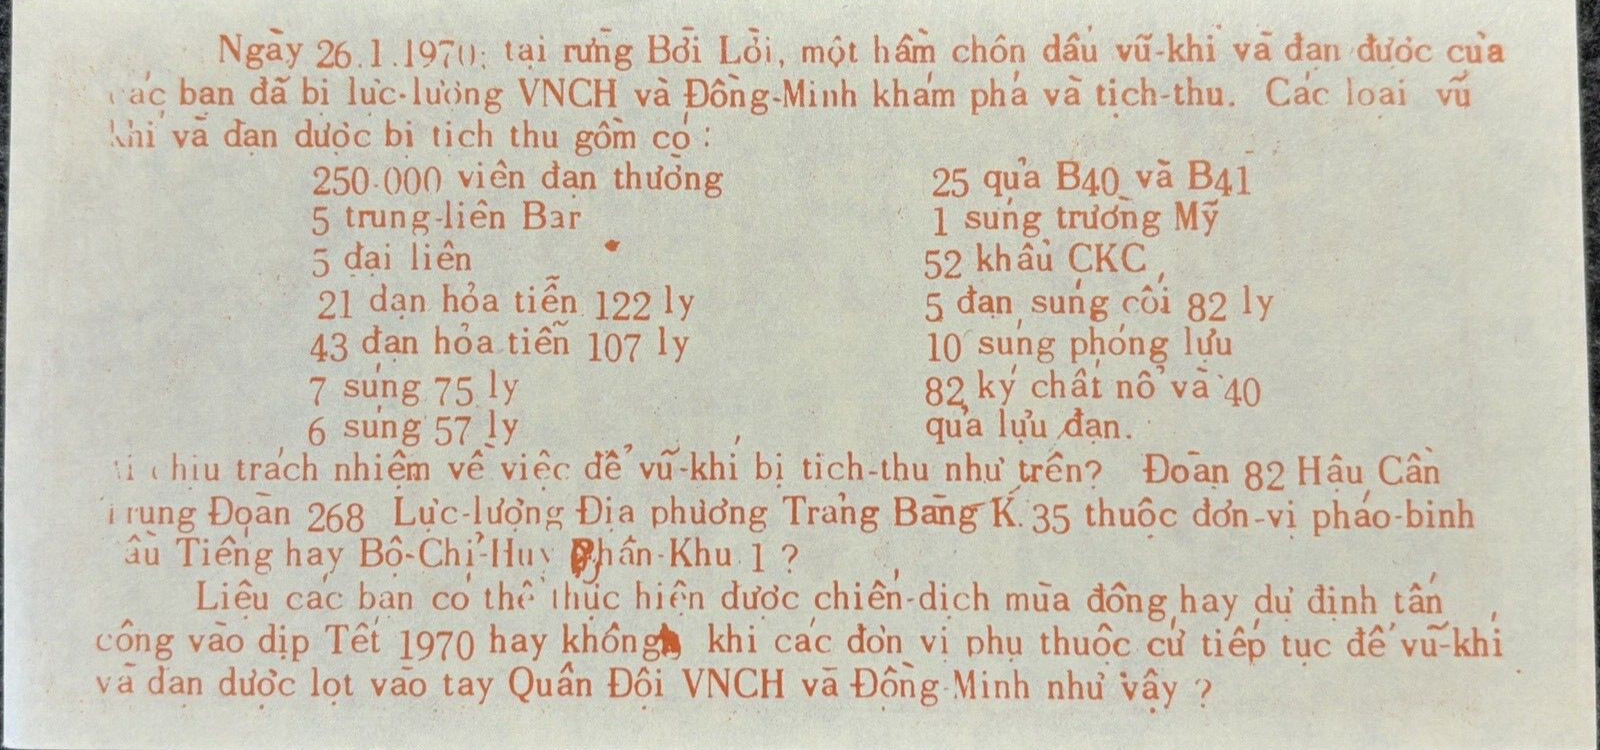 Ngày 26.1.1970; tại rừng Bời Lời, một hầm chôn dấu vũ-khí và đạn dược của
các bạn đã bị lực-lượng VNCH và Đồng-Minh khám phá và tịch-thu. Các loại vũ
khí và đạn dược bị tịch thu gồm có :
250.000 viên đạn thường
5 trung-liên Bar
5 đại liên
21 đạn hỏa tiễn 122 ly
43 đạn hỏa tiễn 107 ly
7 súng 75 ly
6 súng 57 ly
25 quả B40 và B41
1 súng trường Mỹ
52 khẩu CKC
5 đạn súng cối 82 ly
10 súng phóng lựu
82 ký chất nổ và 40
quả lựu đạn.
Ai chịu trách nhiệm về việc để vũ-khí bị tịch-thu như trên? Đoàn 82 Hậu Cần
Trung Đoàn 268 Lực-lượng Địa phương Trảng Bàng K. 35 thuộc đơn-vị pháo-binh
Dầu Tiếng hay Bộ-Chỉ-Huy Phân-Khu 1 ?
Liệu các bạn có thể thực hiện được chiến-dịch mùa đông hay dự định tấn
công vào dịp Tết 1970 hay không khi các đơn vị phụ thuộc cứ tiếp tục để vũ-khí
và đạn dược lọt vào tay Quân Đội VNCH và Đồng-Minh như vậy ?